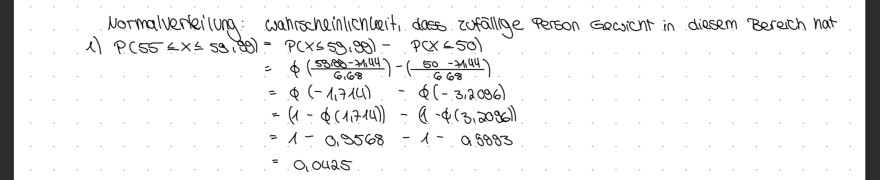 Normalverteilung: Wahrscheinlichkeit, dass zufällige Person Gewicht in diesem Bereich hat
1) P(55 ≤ x ≤ 59,99) = P(X ≤ 59,99) - P(X ≤ 50)
= ϕ (59,99-71,44 / 6,68) - (50 -71,44 / 6,68)
= ϕ (-1,714) - ϕ (-3,2096)
= (1 - ϕ(1,714)) - (1 - ϕ(3,2096))
= 1 - 0,9568 - 1 - 0,9993
= 0,0425